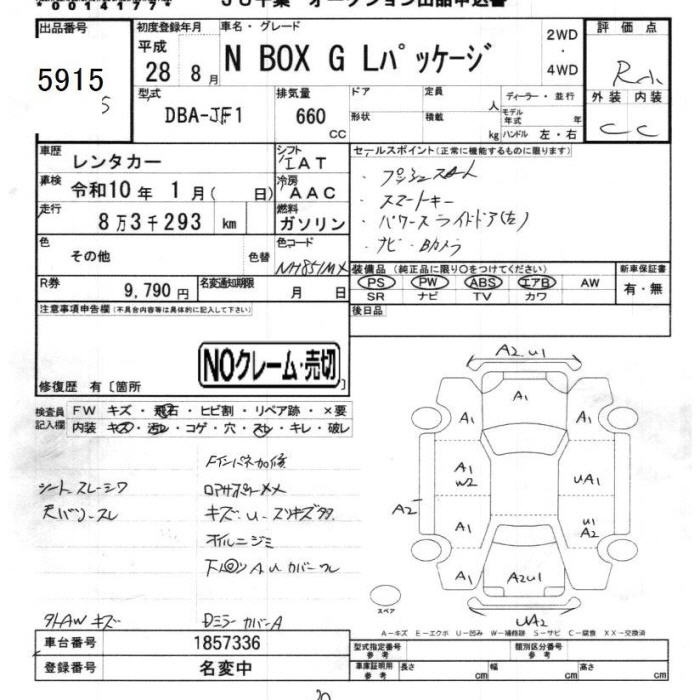 ＪＵ千葉　オークション出品申込書
出品番号
5915
5
初度登録年月
平成
28 8月
車名・グレード
N BOX G Lパッケージ
2WD
・
4WD
評価点
R
外装 内装
C C
型式
DBA-JF1
排気量
660
CC
ドア
形状
定員
人
積載
kg
ディーラー・並行
モデル年式 年
ハンドル 左・右
車歴
レンタカー
シフト
IAT
車検
令和10年 1月( 日)
冷房
AAC
走行
8万3千293 km
燃料
ガソリン
色
その他
色替
色コード
NH851MX
R券
9,790円
名変通知期限
月 日
セールスポイント(正常に機能するものに限ります)
・プッシュスタート
・スマートキー
・パワースライドドア(左)
・ナビ・Bカメラ
装備品(純正品に限り○をつけてください)
PS PW ABS エアB AW
SR ナビ TV カワ
新車保証書
有・無
後日品
注意事項申告欄(不具合内容等は具体的に記入して下さい)
NOクレーム・売切
修復歴 有〔箇所 〕
検査員記入欄
FW キズ・飛石・ヒビ割・リペア跡・×要
内装 キズ・汚レ・コゲ・穴・スレ・キレ・破レ
Fインパネ加修
シート スレ シワ
天バリ スレ
キズ U スリキズ多
オイルニジミ
外AW キズ
Dミラーカバー A
A2 U1
A1
A1
A1
A1
W2
UA1
A2
A1
U1
A2
A1
A2U1
A1
UA2
スペア
A－キズ E－エクボ U－凹み W－補修跡 S－サビ C－腐食 XX－交換済
車台番号
1857336
登録番号
名変中
型式指定番号
参考
類別区分番号
参考
車庫証明用
参考
長さ cm
幅 cm
高さ cm